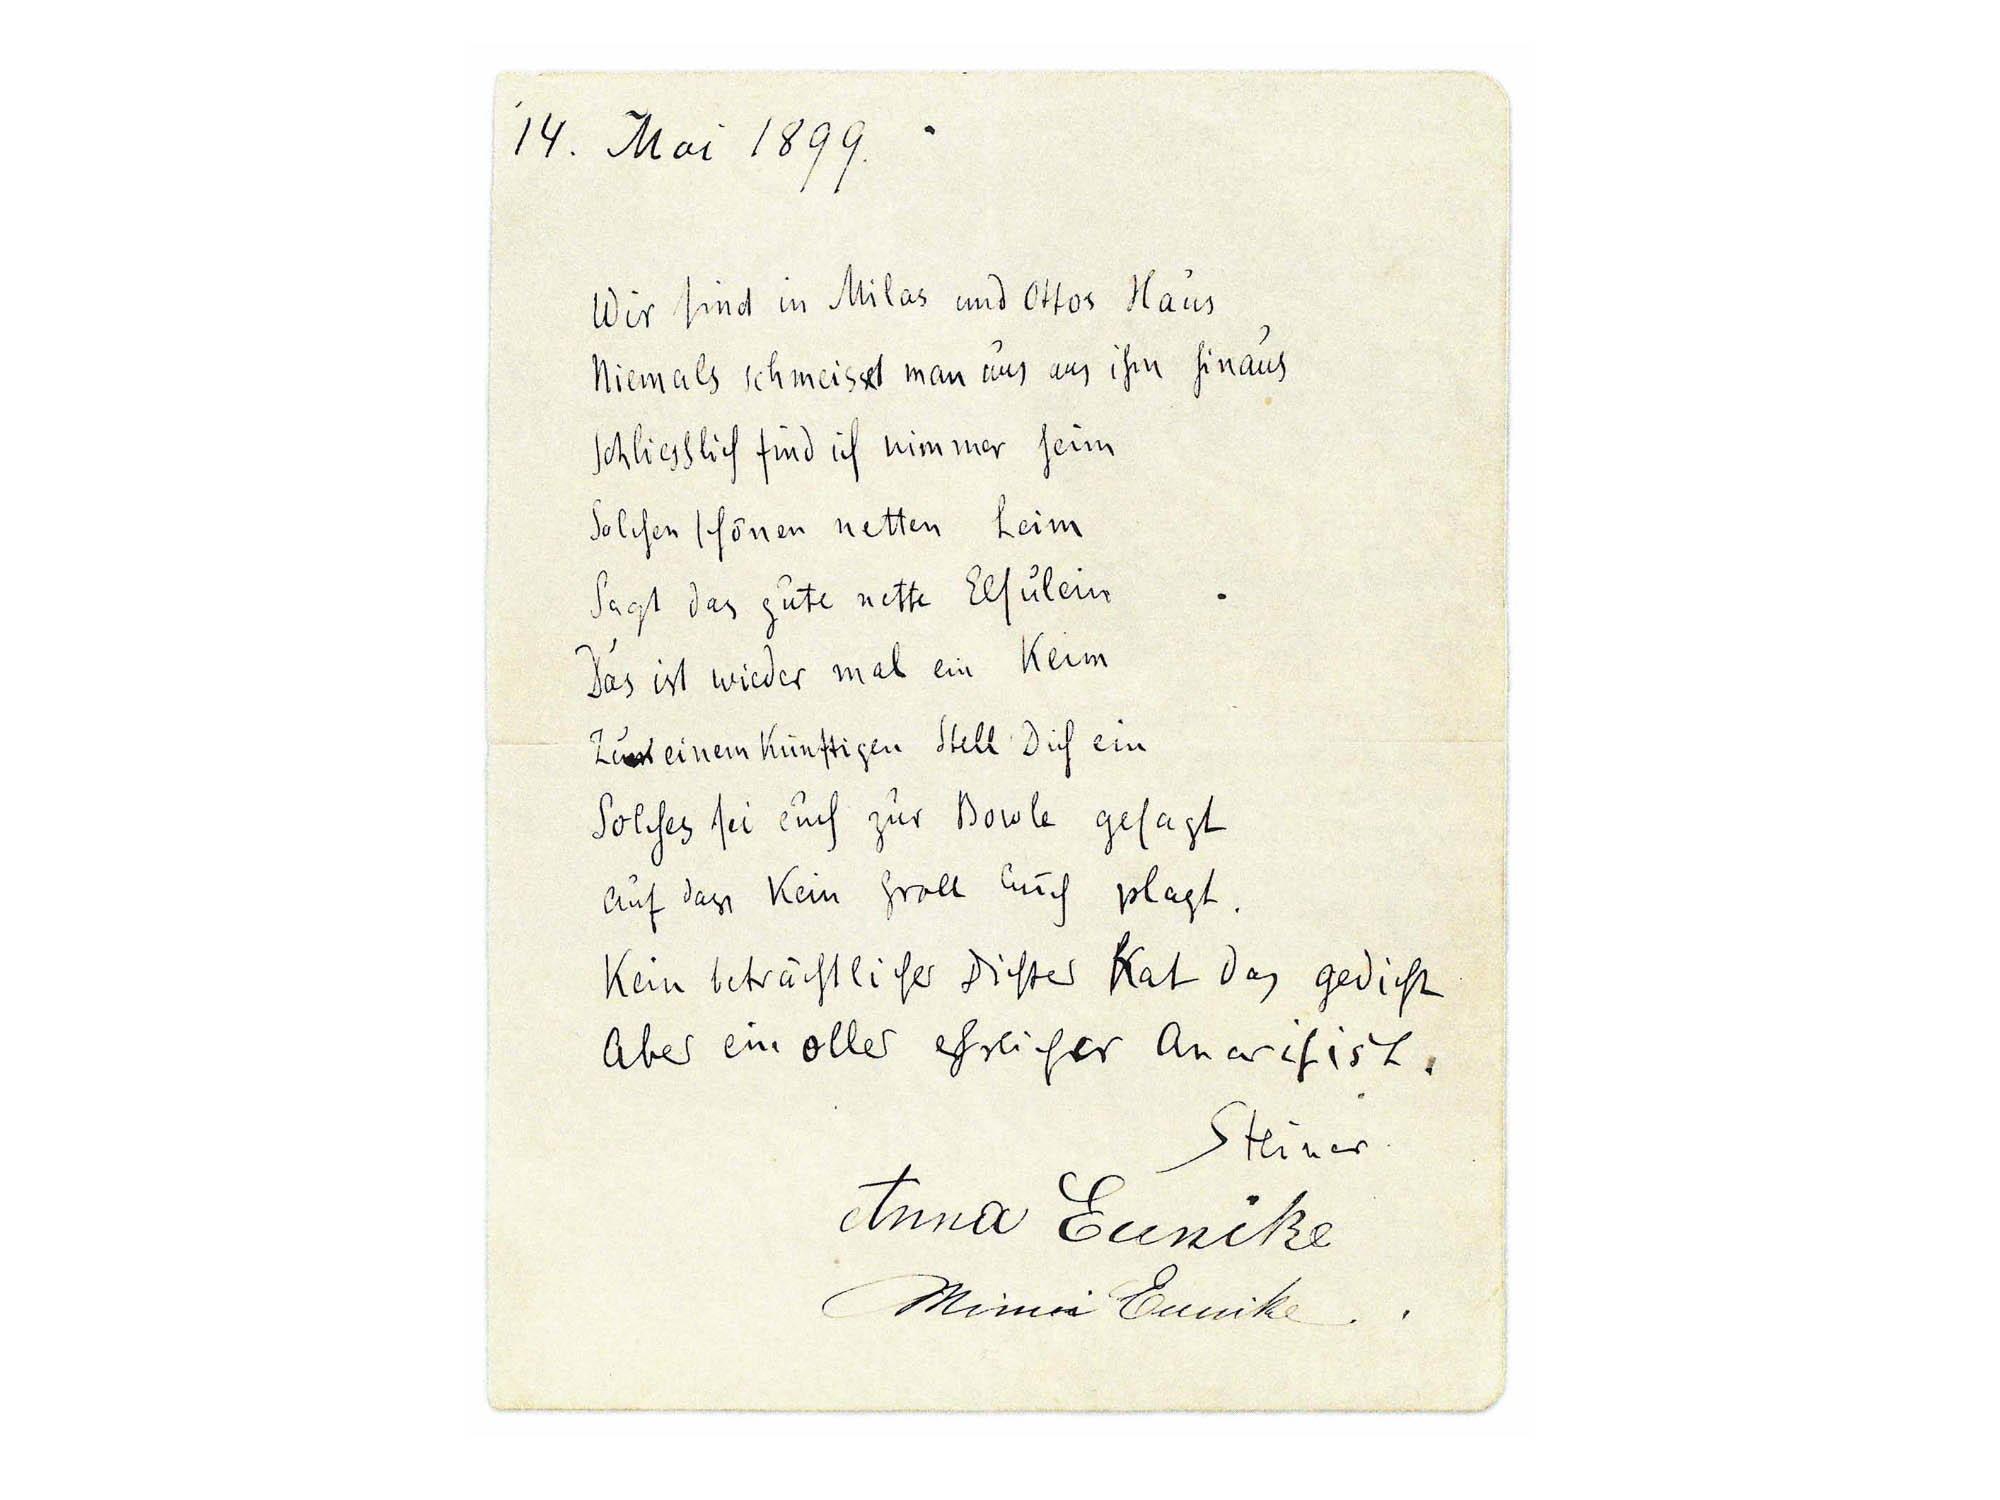 14. Mai 1899.
Wir sind in Milas und Ottos Haus
Niemals schmeisst man uns aus ihm hinaus
Schliesslich find ich nimmer heim
Solchen schönen netten Leim
Sagt das gute nette Elsulein
Das ist wieder mal ein Keim
Zu einem Künftigen Stell Dich ein
Solches sei euch zur Bowle gesagt
Auf dass Kein Groll Euch plagt.
Kein beträchtlicher Dichter hat das gedicht
Aber ein oller ehrlicher Anarchist.
Steiner
Anna Eunike
Mimi Eunike.